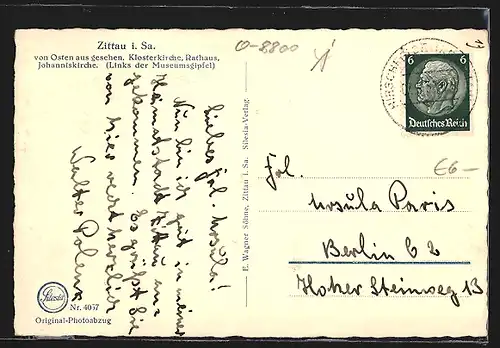 Zittau i. Sa.
von Osten aus gesehen. Klosterkirche, Rathaus,
Johanniskirche. (Links der Museumsgipfel)
O-8800
Liebes Frl. Ursula!
Nun bin ich gut in meiner
Heimatstadt Zittau an-
gekommen. Es grüßt Sie
von hier recht herzlich
Walter
Silesia
Nr. 4057
Original-Photoabzug
E. Wagner Söhne, Zittau i. Sa. Silesia-Verlag
6 6
Deutsches Reich
€6-
Frl.
Ursula Paris
Berlin C 2
Hoher Steinweg 13